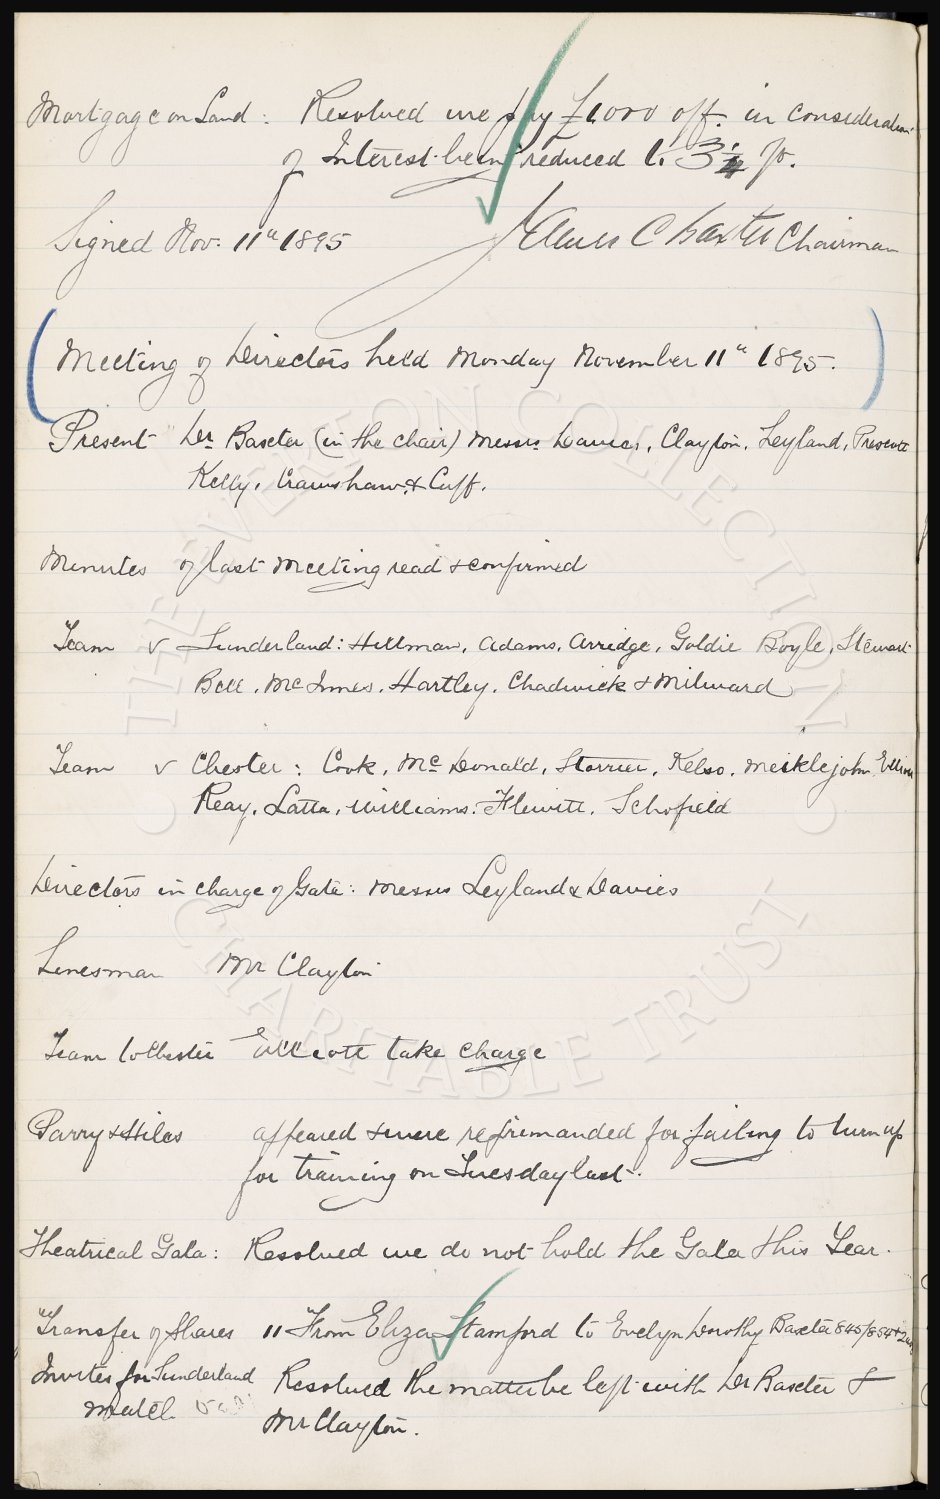 Mortgage on Land: Resolved we pay £1000 off. in consideration
of Interest being reduced to 3¼ p.
Signed Nov. 11th 1895 James C Baxter Chairman
Meeting of Directors held Monday November 11th 1895.
Present Dr Baxter (in the chair) Messrs Davies, Clayton, Leyland, Prescott
Kelly, Crawshaw, & Cuff.
Minutes of last meeting read & confirmed
Team v Sunderland: Hillman, Adams, Arridge, Goldie Boyle, Stewart
Bell, McInnes, Hartley, Chadwick & Milward
Team v Chester: Cook, McDonald, Storrier, Kelso, Meiklejohn, Elliott
Reay, Latta, Williams, Flewitt, Schofield
Directors in charge of Gate: Messrs Leyland & Davies
Linesman Mr Clayton
Team to Chester take charge
Parry & Hiles appeared & were reprimanded for failing to turn up
for training on Tuesday last.
Theatrical Gala: Resolved we do not hold the Gala this Year.
Transfer of Shares 11 From Eliza Stamford to Evelyn Dorothy Baxter 845/854 &
Invites for Sunderland Resolved the matter be left with Dr Baxter &
match Mr Clayton.
THE EVERTON COLLECTION
CHARITABLE TRUST